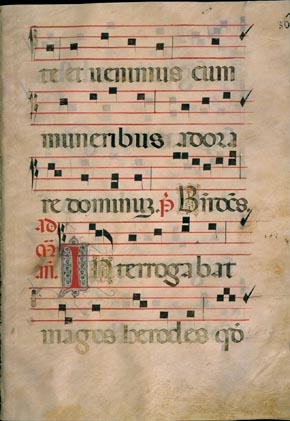 te et uenimus cum
muneribus adora
re dominuz. ps̄ Bn̄dc̄s.
ad
mag̃
añ. Interrogabat
magos herodes qd̄